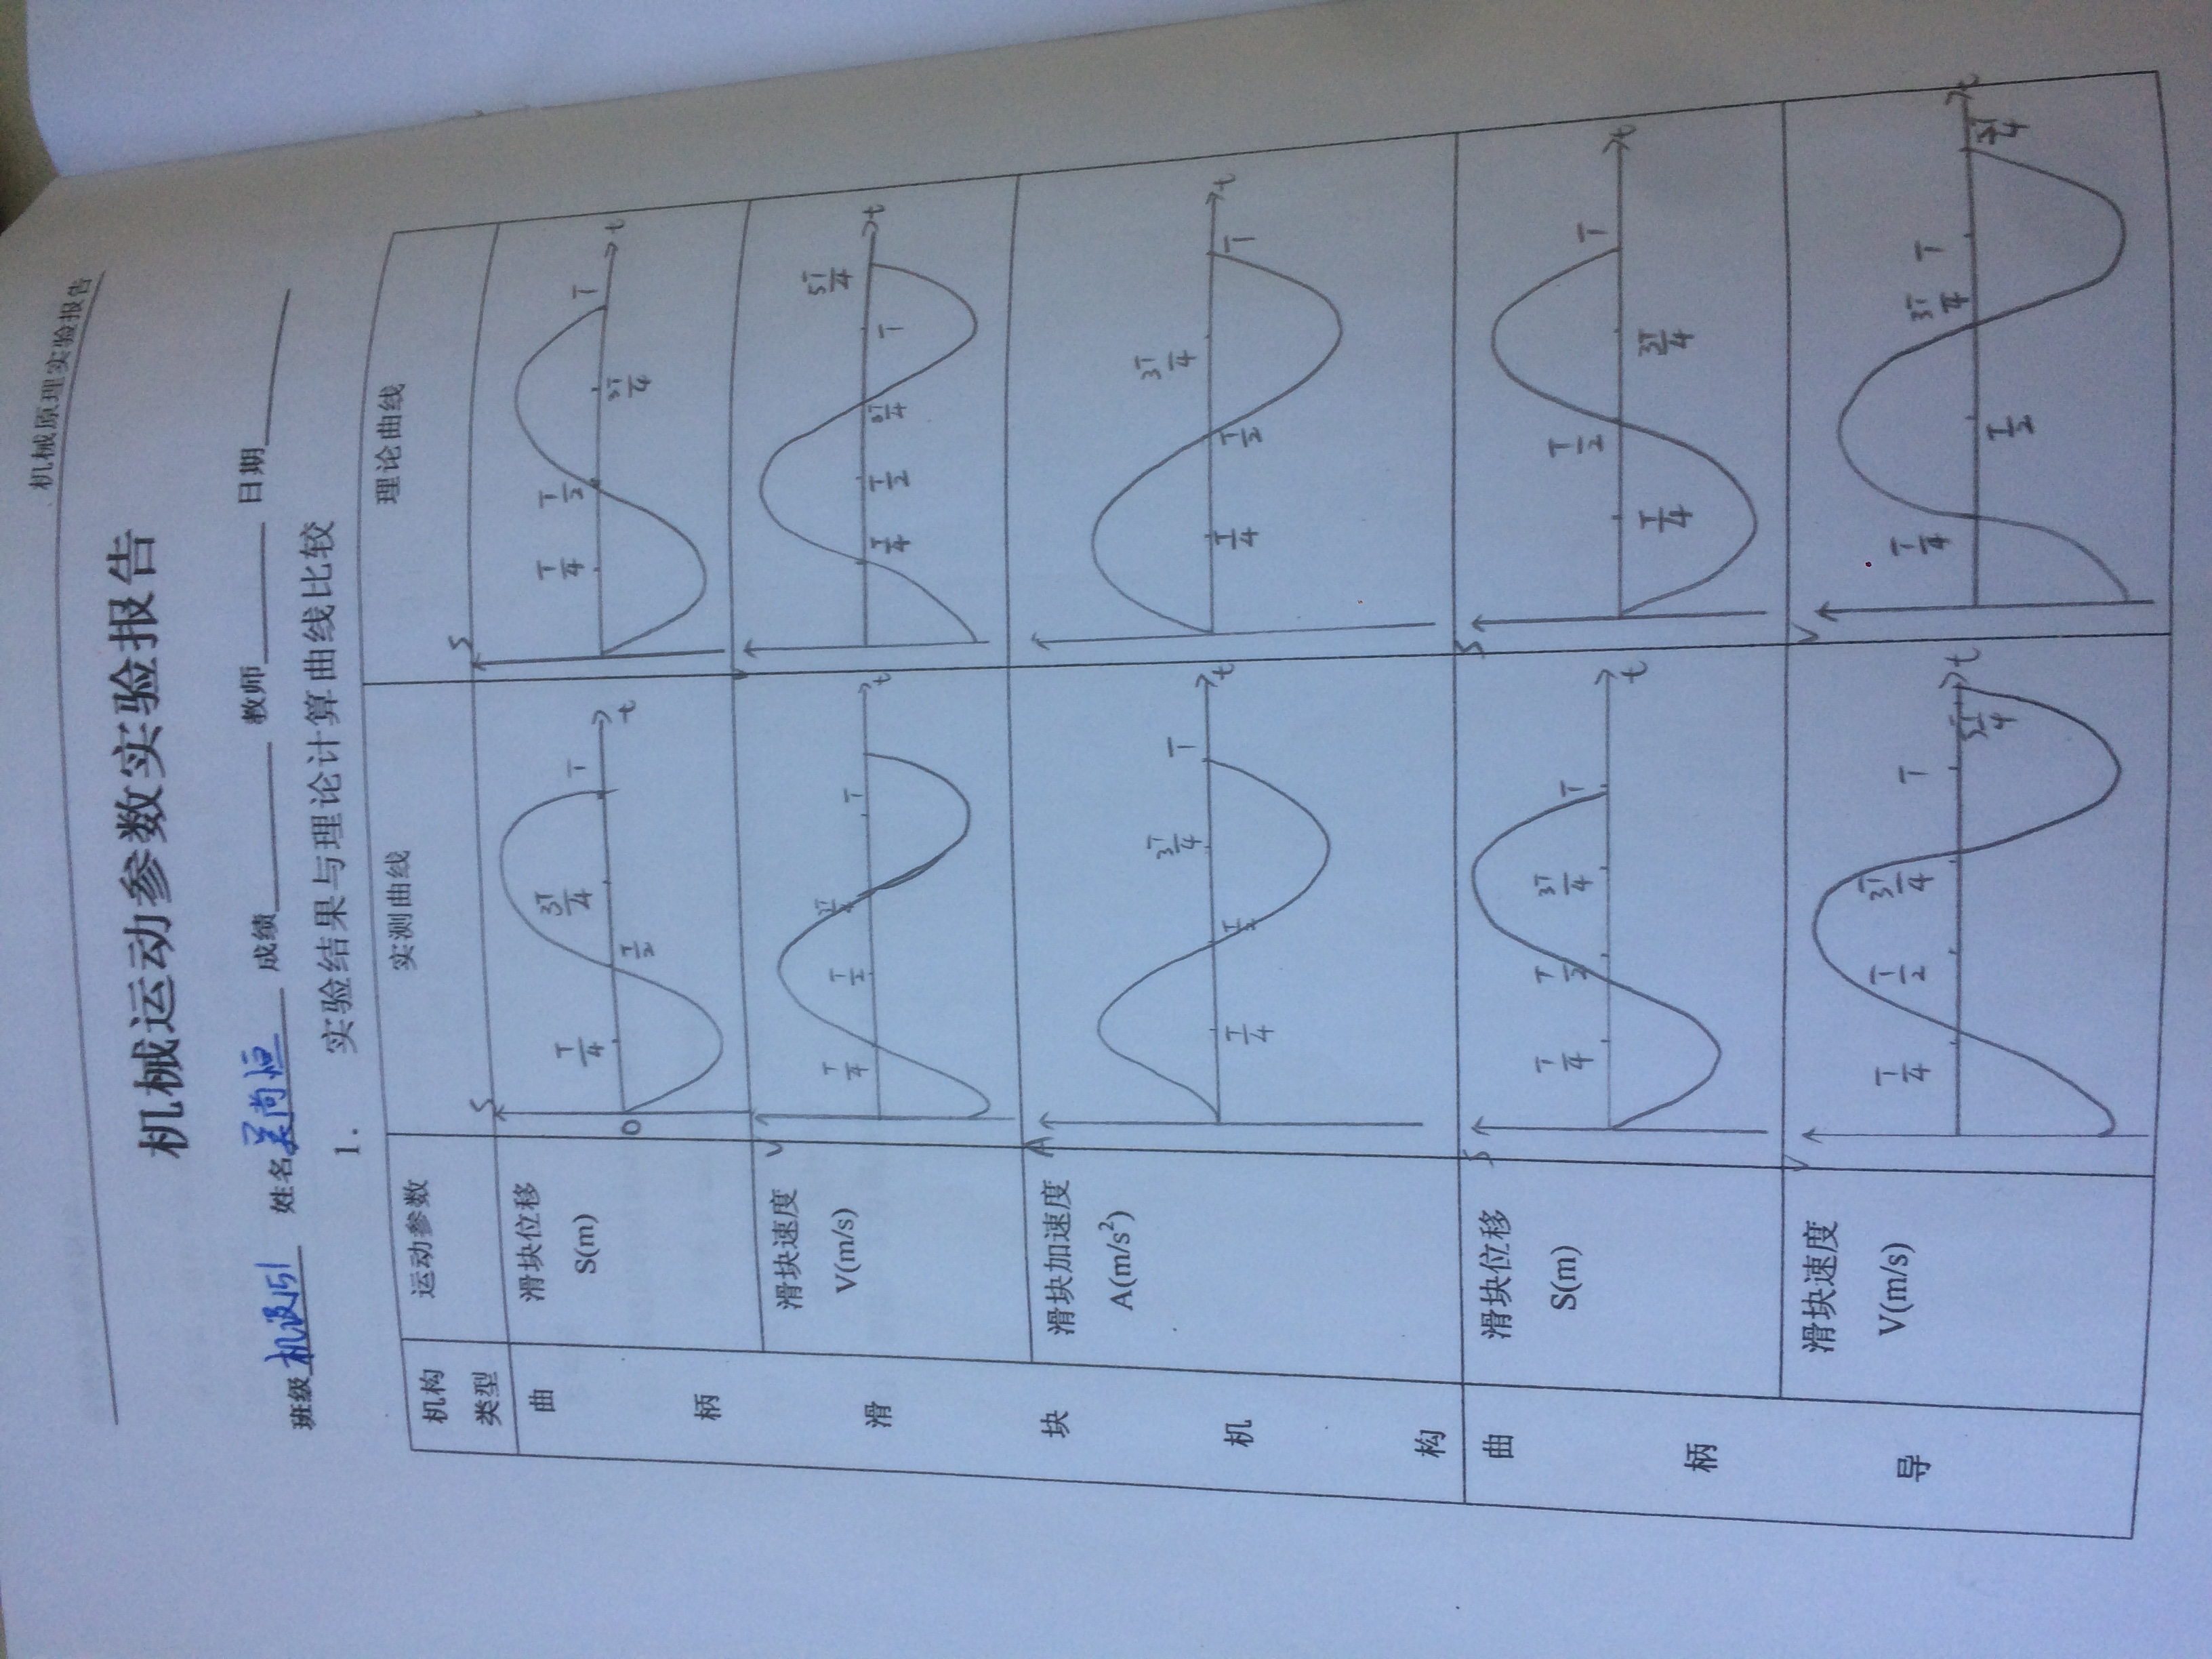 机械原理实验报告
机械运动参数实验报告
班级 机设151 姓名 吴尚恒 成绩 教师 日期
1. 实验结果与理论计算曲线比较
机构类型 运动参数 实测曲线 理论曲线
曲柄滑块机构
滑块位移
S(m)
S
T/4
3T/4
T
O
T/2
t
S
T/4
T/2
T
3T/4
t
滑块速度
V(m/s)
V
T/4
T/2
3T/4
T
t
V
5T/4
T/4
T/2
3T/4
T
t
滑块加速度
A(m/s²)
A
3T/4
T
T/4
T/2
t
3T/4
T/4
T/2
T
t
曲柄导
滑块位移
S(m)
S
T/4
T/2
3T/4
T
t
S
T/2
T
T/4
3T/4
t
滑块速度
V(m/s)
V
T/4
T/2
3T/4
T
5T/4
t
V
T/4
3T/4
T
T/2
5T/4
t